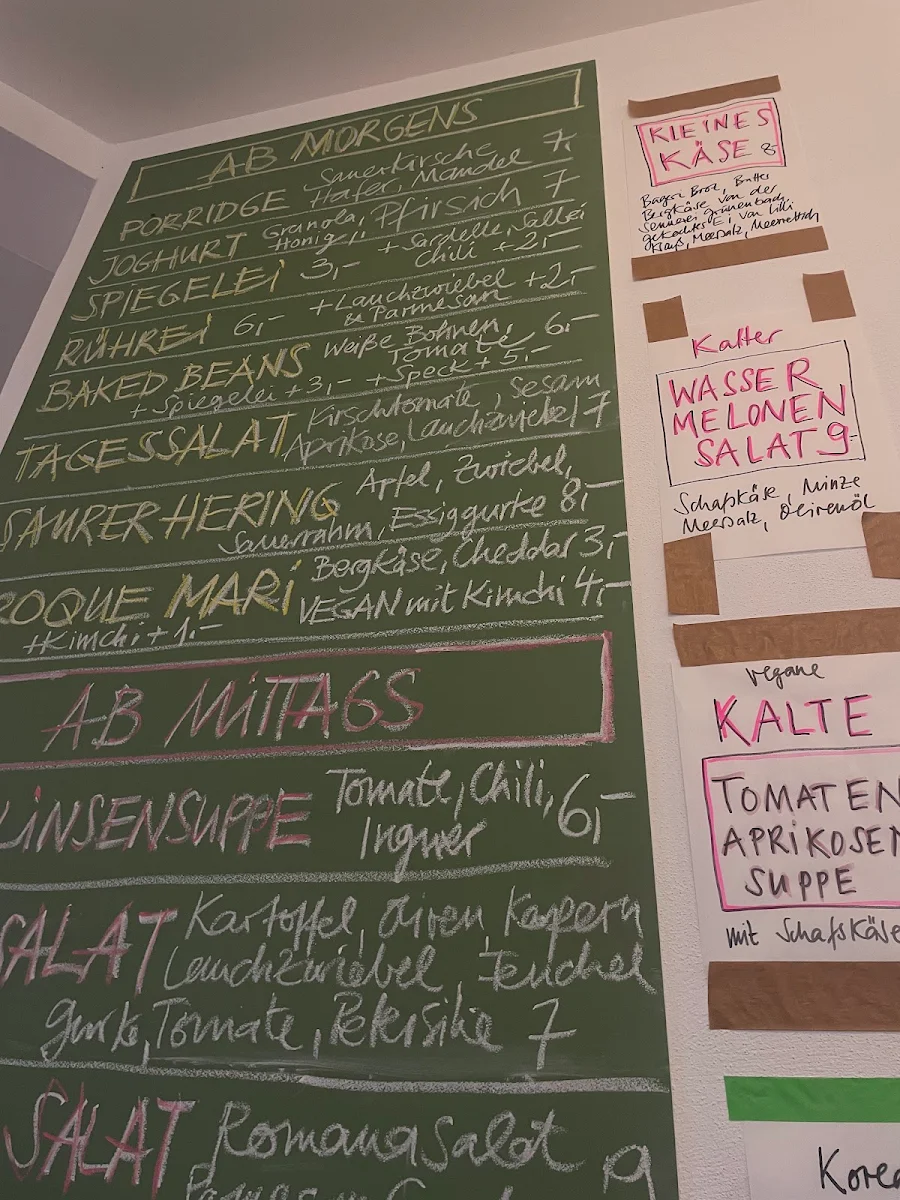 AB MORGENS
PORRIDGE Sauerkirsche 7,-
Hafer, Mandel
JOGHURT Granola, Pfirsich 7
Honig
SPIEGELEI 3,- + Sardelle, Salbei
Chili + 2,-
RÜHREI 6,- + Lauchzwiebel + 2,-
& Parmesan
BAKED BEANS Weiße Bohnen, 6,-
Tomate
+ Spiegelei + 3,- + Speck + 5,-
TAGESSALAT Kirschtomate, Sesam
Aprikose, Lauchzwiebel 7
SAURER HERING Apfel, Zwiebel,
Sauerrahm, Essiggurke 8,-
ROQUE MARi Bergkäse, Cheddar 3,-
VEGAN mit Kimchi 4,-
+ Kimchi + 1.-
AB MiTTAGS
LiNSENSUPPE Tomate, Chili, 6,-
Ingwer
SALAT Kartoffel, Oliven Kapern
Lauchzwiebel, Fenchel
Gurke, Tomate, Petersilie 7
SALAT Romana Salat 9
KLEINES
KÄSE 8-
Brot, Butter
Bergkäse von der
Sennerei Grünenbach
gekochtes Ei von Lilli
Meersalz, Meerrettich
Kalter
WASSER
MELONEN
SALAT 9-
Schafskäse, Minze
Meersalz, Olivenöl
vegane
KALTE
TOMATEN
APRIKOSEN
SUPPE
mit Schafskäse
Korea